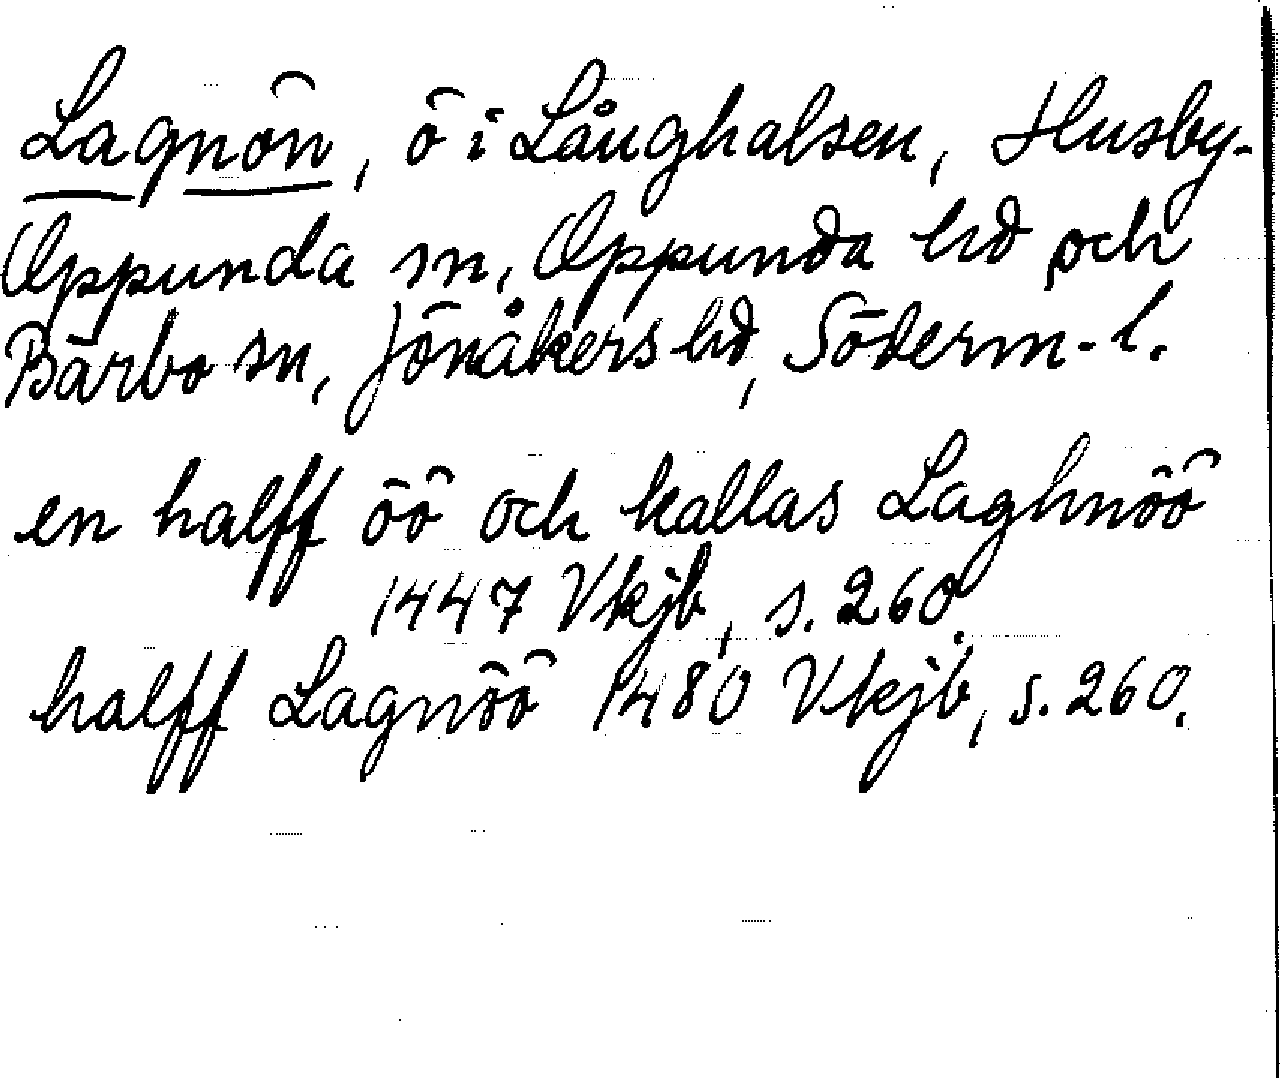 Lagnön, ö i Långhalsen, Husby-
Oppunda sn, Oppunda hd och
Bärbo sn, Jönåkers hd, Söderm. l.
en halff öö och kallas Laghnöö
1447 Vkjb, s. 260.
halff Lagnöö 1480 Vkjb, s. 260.